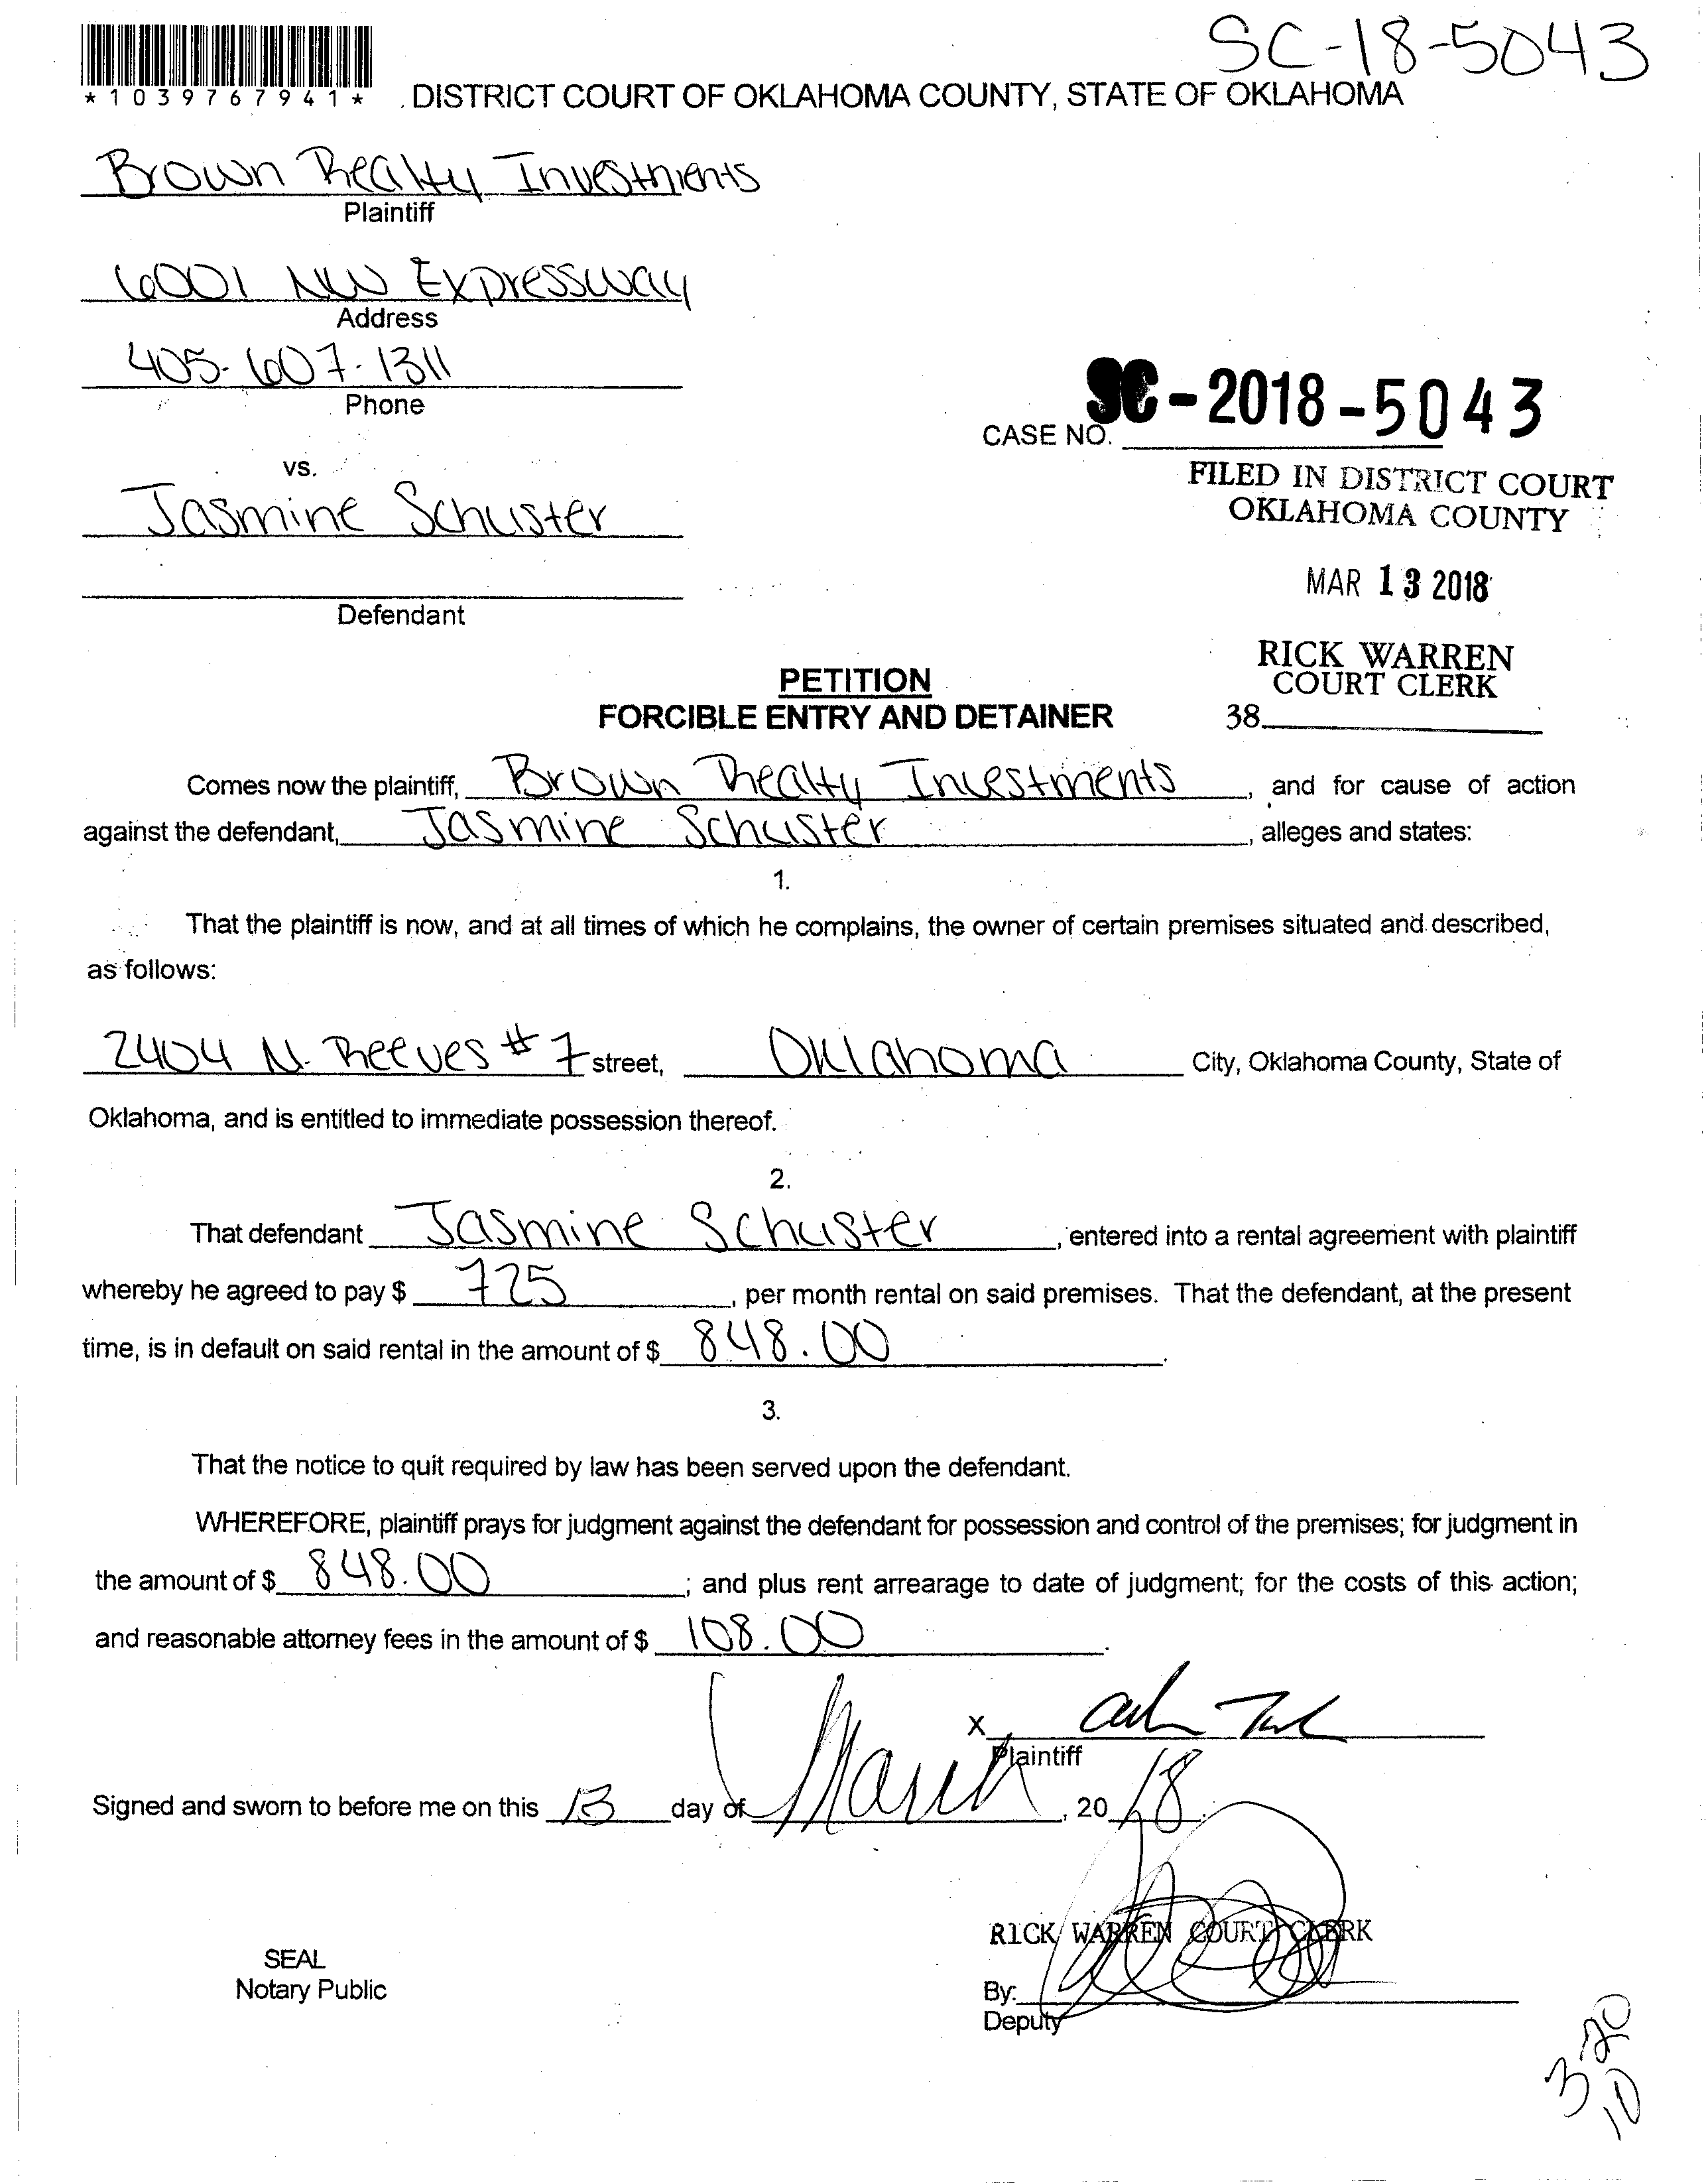 SC-18-5043
*1039767941*
DISTRICT COURT OF OKLAHOMA COUNTY, STATE OF OKLAHOMA
Brown Realty Investments
Plaintiff
6001 NW Expressway
Address
405-607-1311
Phone
SC-2018-5043
CASE NO.
vs.
FILED IN DISTRICT COURT
OKLAHOMA COUNTY
Jasmine Schuster
MAR 13 2018
Defendant
RICK WARREN
COURT CLERK
38
PETITION
FORCIBLE ENTRY AND DETAINER
Comes now the plaintiff, Brown Realty Investments, and for cause of action
against the defendant, Jasmine Schuster, alleges and states:
1.
That the plaintiff is now, and at all times of which he complains, the owner of certain premises situated and described,
as follows:
2404 N. Reeves #7 street, Oklahoma City, Oklahoma County, State of
Oklahoma, and is entitled to immediate possession thereof.
2.
That defendant Jasmine Schuster, entered into a rental agreement with plaintiff
whereby he agreed to pay $ 725, per month rental on said premises. That the defendant, at the present
time, is in default on said rental in the amount of $ 848.00.
3.
That the notice to quit required by law has been served upon the defendant.
WHEREFORE, plaintiff prays for judgment against the defendant for possession and control of the premises; for judgment in
the amount of $ 848.00; and plus rent arrearage to date of judgment; for the costs of this action;
and reasonable attorney fees in the amount of $ 108.00.
X
Plaintiff
Signed and sworn to before me on this 13 day of March, 2018.
RICK WARREN COURT CLERK
SEAL
Notary Public
By:
Deputy
3-20
10